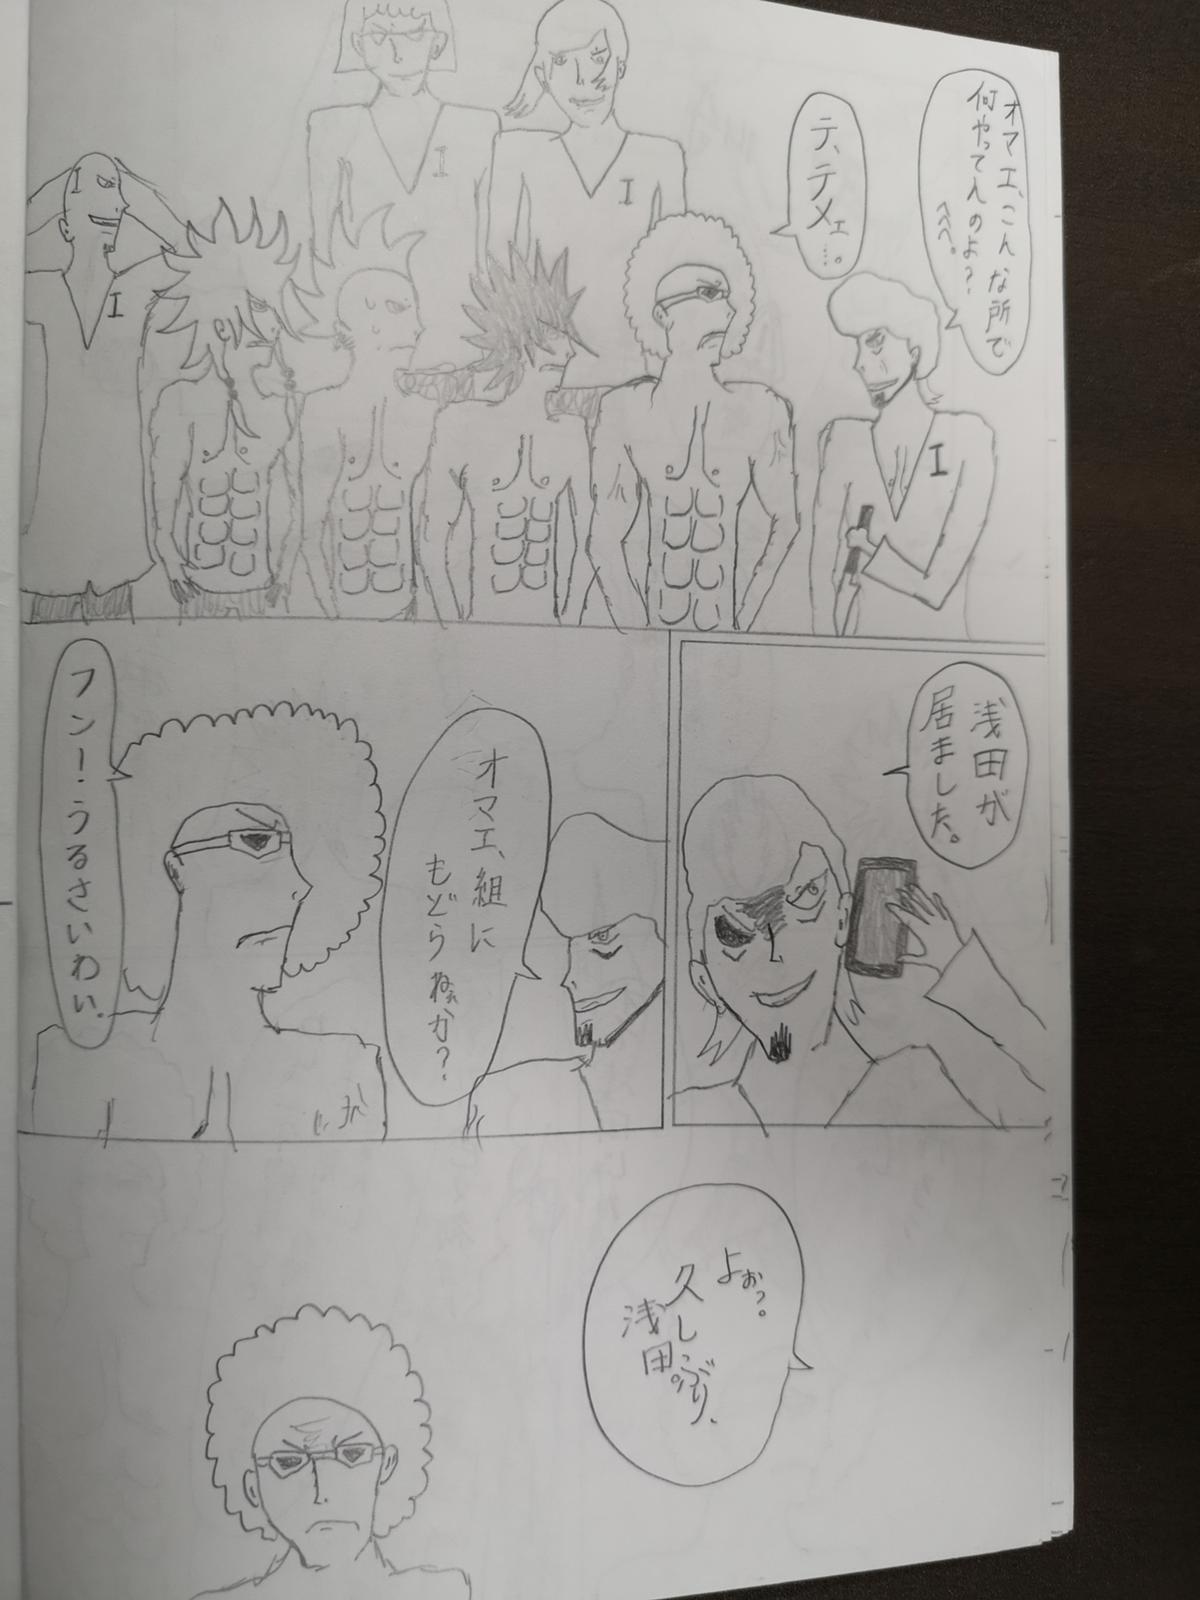 オマエ、こんな所で
何やってんのよ?
へへへ。
テ、テメェ
…。
I
I
I
I
I
浅田が
居ました。
オマエ、組に
もどらねぇか?
フン!うるさいわい。
よぉ?。
久しっぶり、
浅田。